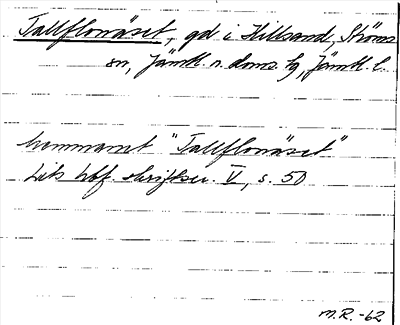 Tallflonäset, gd. i Hillsand, Ströms
sn, Jämtl. n. doms. hg, Jämtl. l.
hemmanet "Tallflonäset"
Lits hbf. skriftser. V, s. 50
M.R. -62